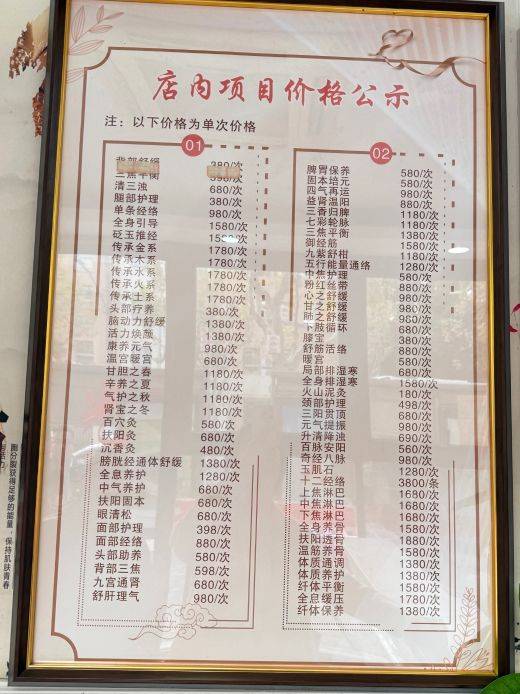 店内项目价格公示
注：以下价格为单次价格
01
背部舒缓 380/次
三焦平衡
清三浊 680/次
腿部护理 380/次
单条经络 980/次
全身引导 1580/次
砭玉推经 1580/次
传承金系 1780/次
传承木系 1780/次
传承水系 1780/次
传承火系 1780/次
传承土系 1780/次
头部疗养 380/次
脑动力舒缓 1380/次
活力焕颜 1080/次
康养元气 980/次
温宫暖宫 680/次
甘胆之春 1180/次
辛养之夏 1180/次
气护之秋 1180/次
肾宝之冬 1180/次
百穴灸 580/次
扶阳灸 680/次
沉香灸 480/次
膀胱经通体舒缓 1380/次
全息养护 1280/次
中气养护 680/次
扶阳固本 680/次
眼清松 680/次
面部护理 398/次
面部经络 880/次
头部助养 580/次
背部三焦 598/次
九宫通肾 680/次
舒肝理气 980/次
02
脾胃保养 580/次
固本培元 580/次
四气再运 980/次
益肾温阳 580/次
三香归脾 1180/次
七彩轮脉 1580/次
三焦平衡 1380/次
御经筋 580/次
九紫舒柑 1180/次
五行能量通络 1280/次
中焦护理 580/次
粉红丝带 580/次
心之舒缓 980/次
甘之舒缓 980/次
肺之舒缓 980/次
下肢循环
膝宝
舒筋活络
暖宫
局部排湿寒
全身排湿寒 1580/次
火山泥灸 180/次
颈部护理 498/次
三阳贯顶 980/次
元气提振 580/次
升清降浊 690/次
百脉安阳 560/次
奇经八脉 980/次
玉肌石 1280/次
十二经络 3800/条
上焦淋巴 1680/次
中焦淋巴 1680/次
下焦淋巴 1680/次
全身养骨 880/次
扶阳透骨 1580/次
温筋养骨 1580/次
体质通调 1380/次
体质养护 1380/次
纤体平衡 1380/次
全息缓压 1780/次
纤体保养 1380/次
圈分裂获得足够的能量，保持肌肤青春